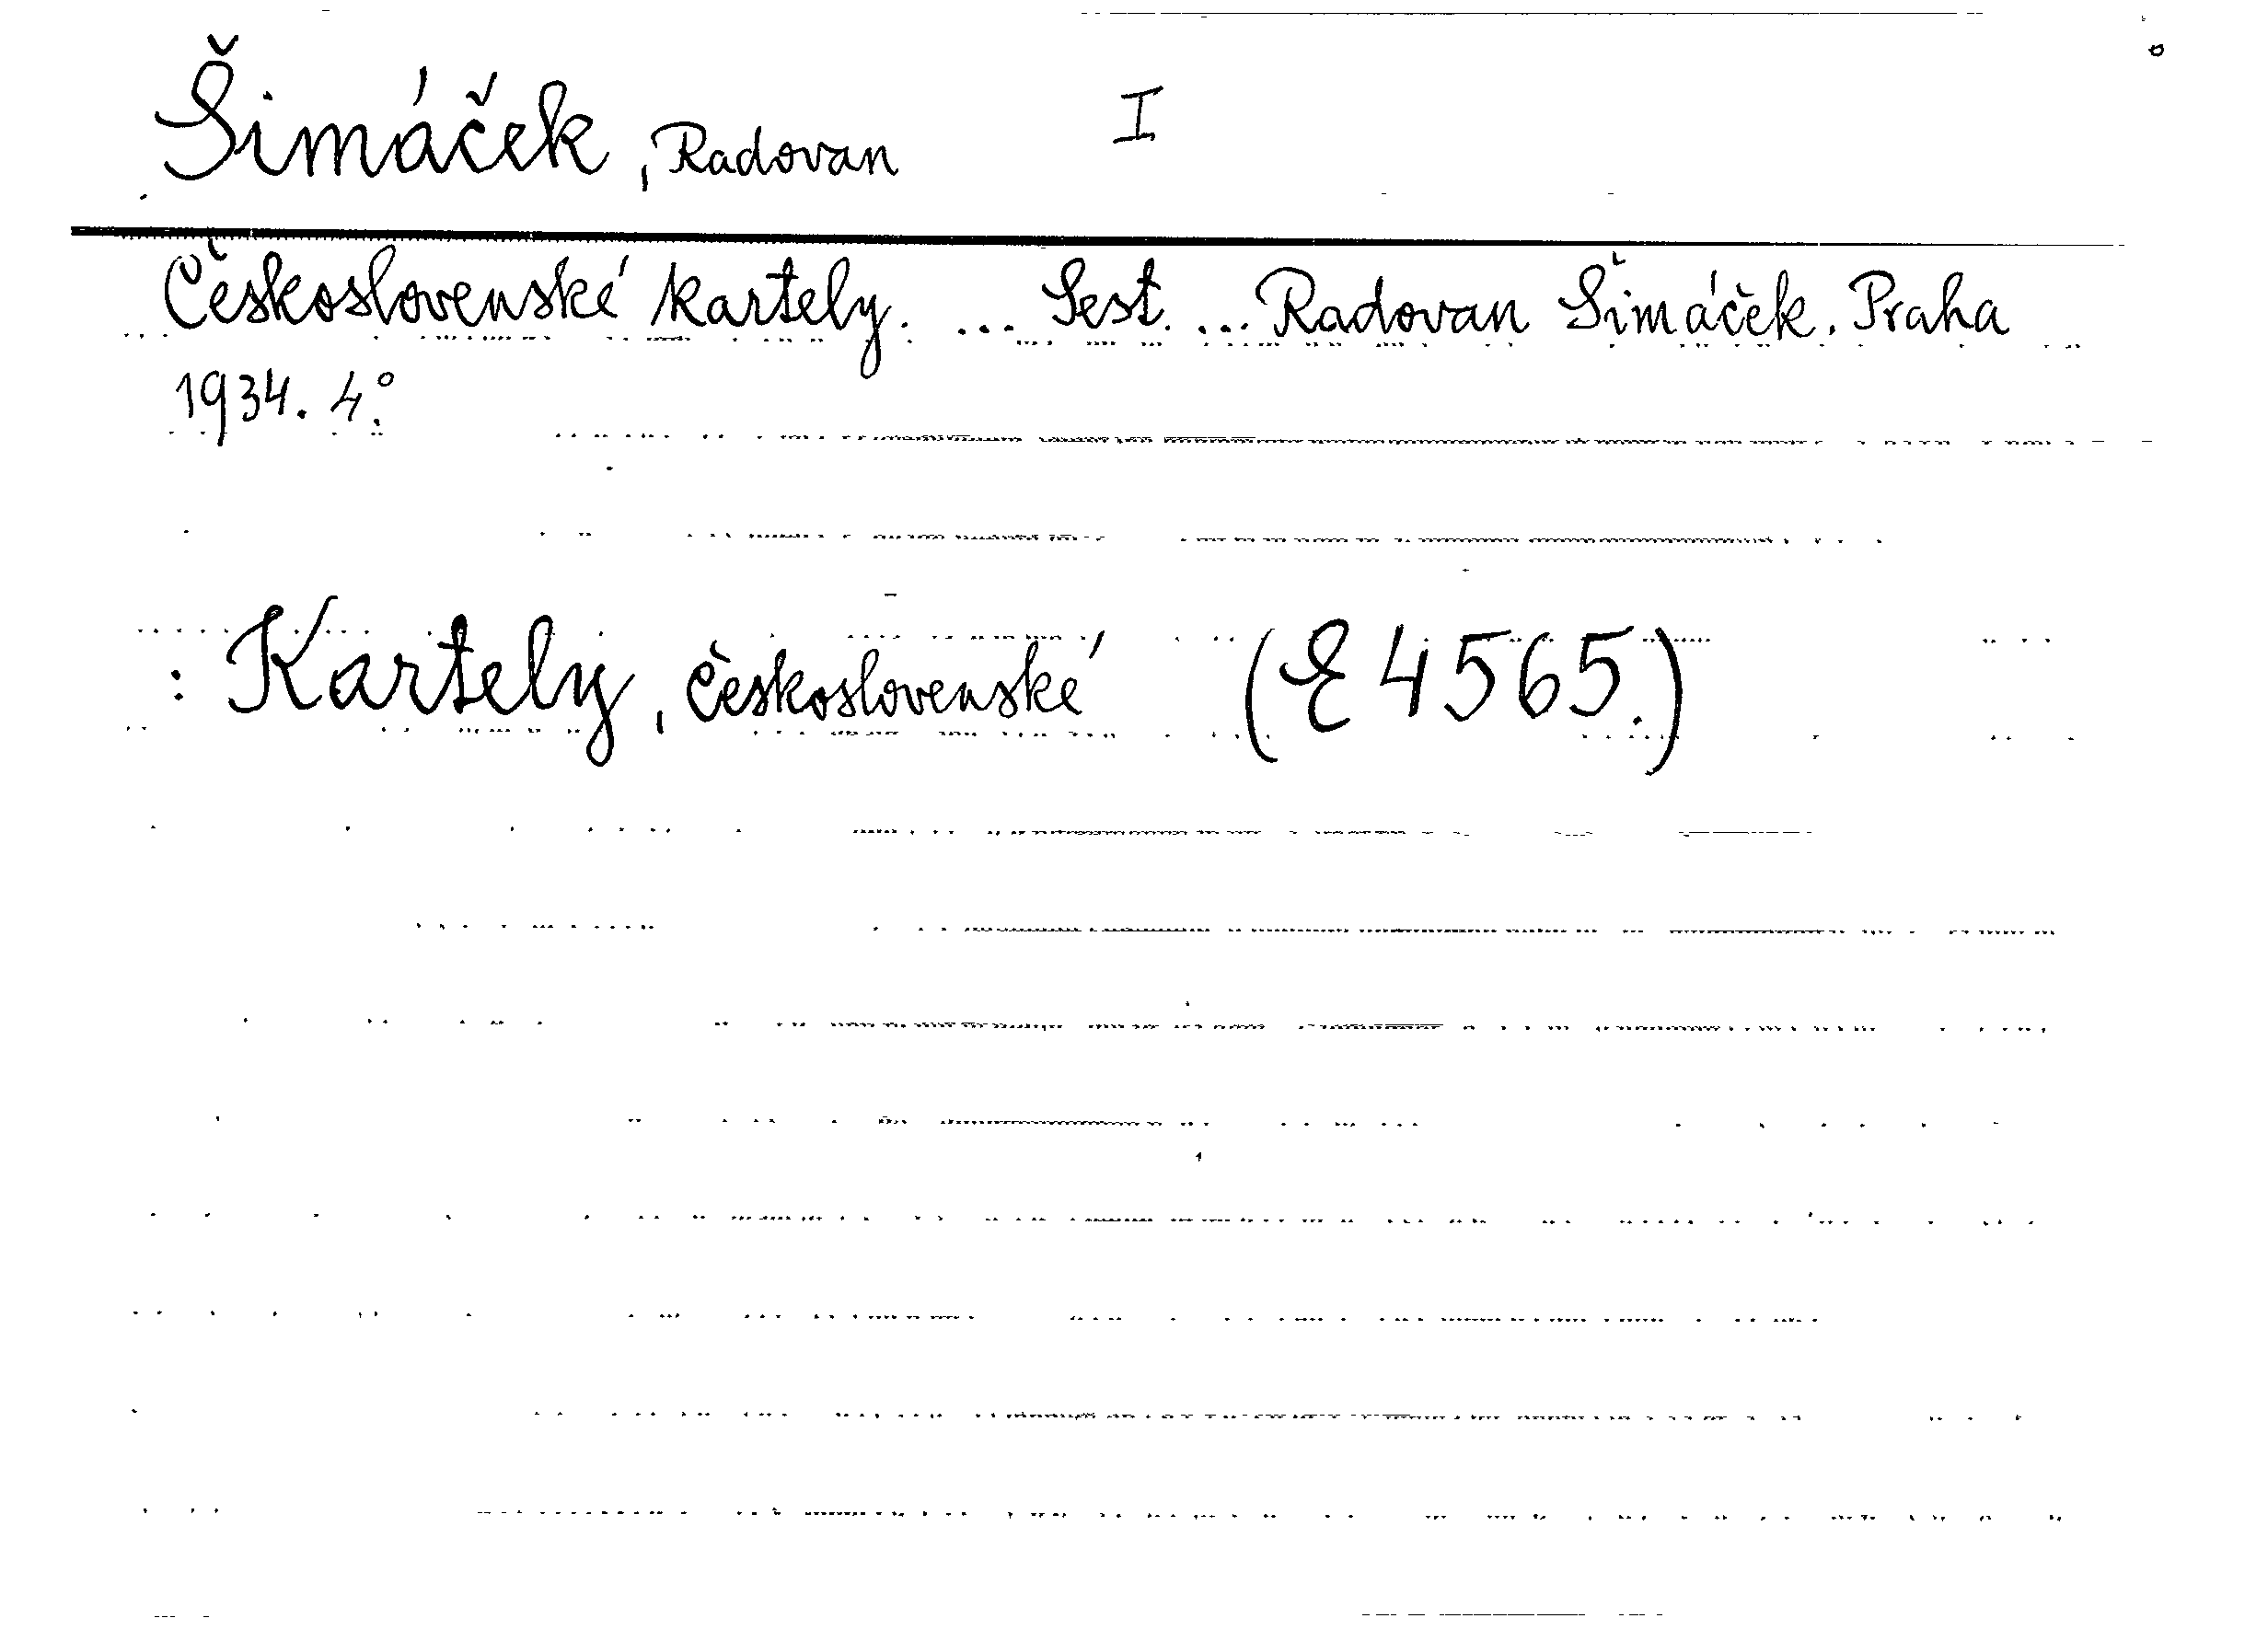 Šimáček, Radovan I
Československé kartely. ... Sest. ... Radovan Šimáček. Praha
1934. 4°.
: Kartely, československé (E 4565.)